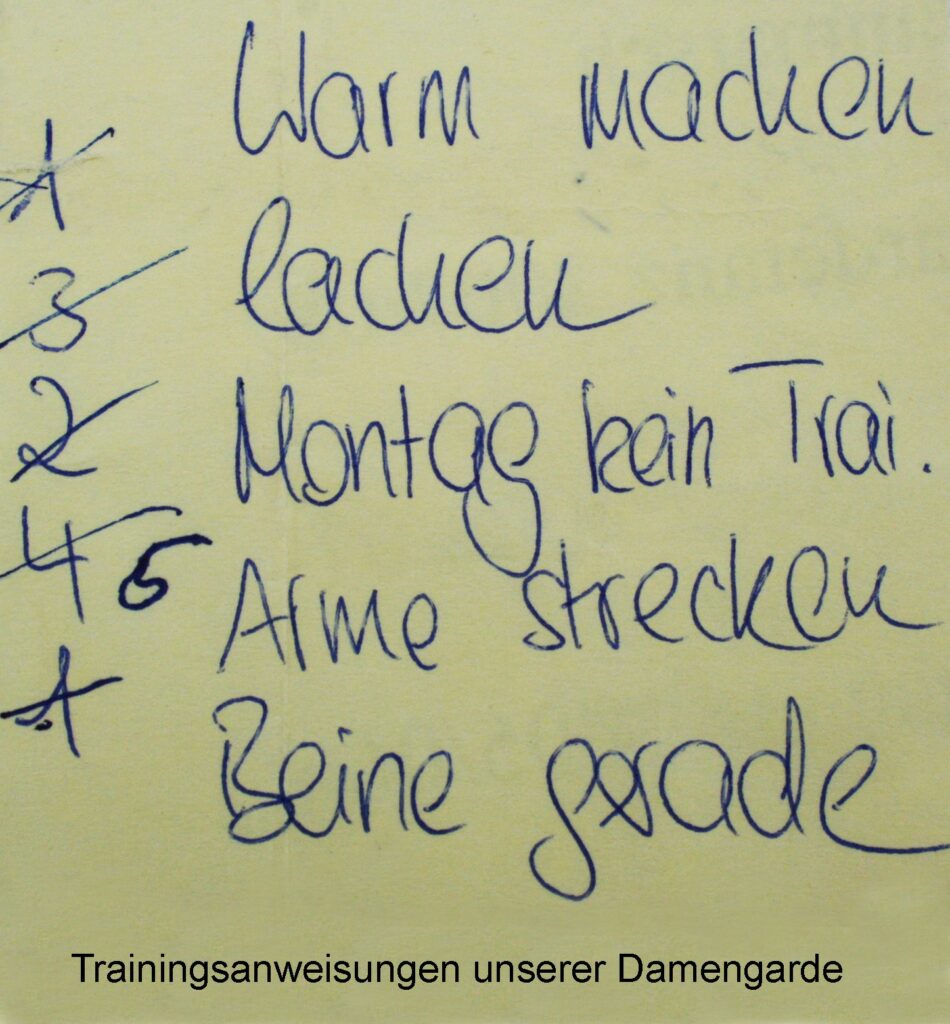 Warm machen
1
lachen
3
Montag kein Trai.
2
4 5 Arme strecken
1
Beine gerade
Trainingsanweisungen unserer Damengarde